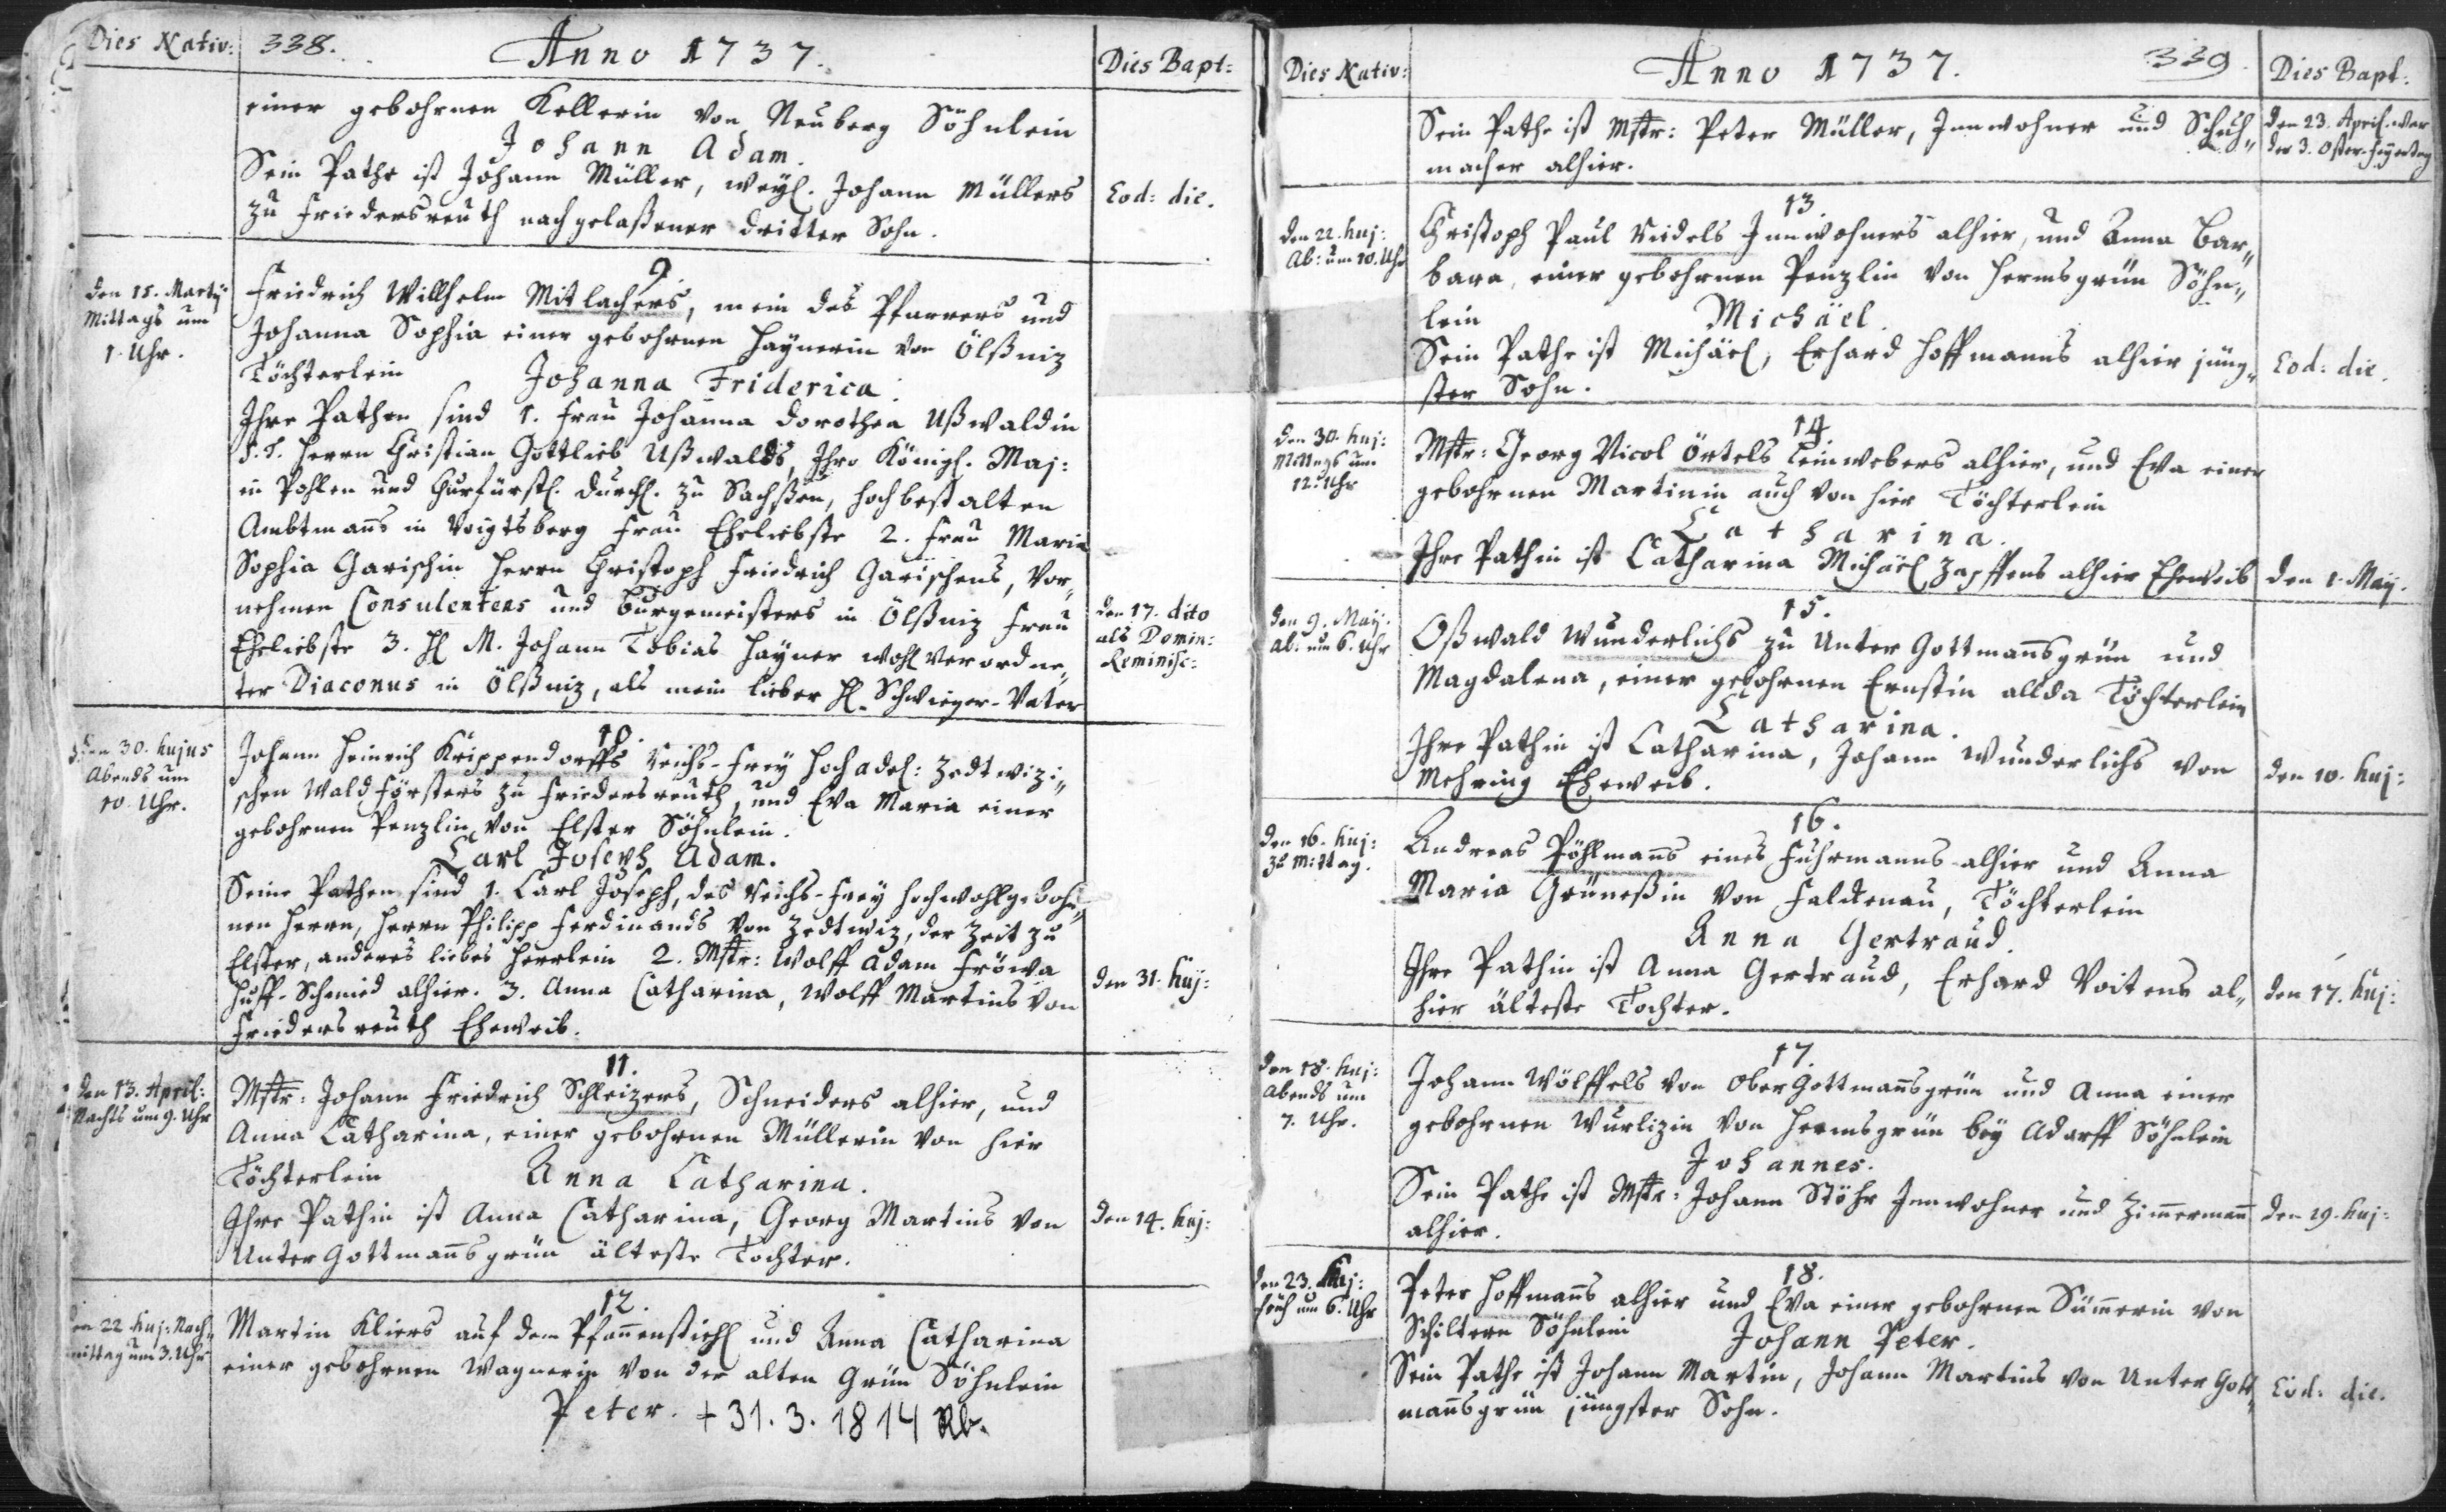 Dies Nativ: 338. Anno 1737. Dies Bapt:
einer gebohrnen Kellerin von Neuberg Söhnlein
Johann Adam.
Sein Pathe ist Johann Müller, weyl. Johann Müllers
zu Friedersreuth nachgelaßener dritter Sohn.
Eod: die.
9.
den 15. Martij
Mittags um
1. Uhr.
Friedrich Willhelm Mitlachers, mein des Pfarrers und
Johanna Sophia einer gebohrnen Haynerin von Ölßniz
Töchterlein Johanna Friderica.
Ihre Pathen sind 1. Frau Johanna Dorothea Ußwaldin
S. T. Herrn Christian Gottlieb Ußwalds, Ihro Königl. Maj:
in Pohlen und Churfürstl. Durchl. zu Sachßen, hochbestalten
Ambtmañs in Voigtsberg Frau Eheliebste 2. Frau Maria
Sophia Garischin Herrn Christoph Friedrich Garischens, vor„
nehmen Consulentens und Burgemeisters in Ölßniz Frau
Eheliebste 3. H. M. Johann Tobias Hayner wohl verordne„
ter Diaconus in Ölßniz, als mein lieber H. Schwieger-Vater
den 17. dito
als Domin:
Reminisc:
10.
den 30. hujus
Abends um
10. Uhr.
Johann Heinrich Krippendorffs Reichs-Frey Hochadel: Zedtwizi„
schen Waldförsters zu Friedersreuth, und Eva Maria einer
gebohrnen Penzlin von Elster Söhnlein.
Carl Joseph Adam.
Seine Pathen sind 1. Carl Joseph, des Reichs-Frey Hochwohlgebohr„
nen Herrn, Herrn Philipp Ferdinands von Zedtwiz, der Zeit zu
Elster, anderes liebes Herrlein 2. Mstr: Wolff Adam Fröwa
Huff-Schmied alhier. 3. Anna Catharina, Wolff Martins von
Friedersreuth Eheweib.
den 31. huj:
11.
den 13. April:
Nachts um 9. Uhr
Mstr: Johann Friedrich Schleizers, Schneiders alhier, und
Anna Catharina, einer gebohrnen Müllerin von hier
Töchterlein Anna Catharina.
Ihre Pathin ist Anna Catharina, Georg Martins von
Unter Gottmañsgrün älteste Tochter.
den 14. huj:
12.
den 22 huj: Nach„
mittag um 3. Uhr
Martin Kliers auf dem Pfañenstiehl und Anna Catharina
einer gebohrnen Wagnerin von der alten Grün Söhnlein
Peter. + 31. 3. 1814 Rb.
Dies Nativ: Anno 1737. 339. Dies Bapt:
Sein Pathe ist Mstr: Peter Müller, Innwohner und Schuh„
macher alhier.
den 23. April. war
der 3. Oster-Feyertag
13.
den 22. huj:
Ab: um 10. Uhr
Christoph Paul Riedels Innwohners alhier, und Anna Bar„
bara, einer gebohrnen Penzlin von Hermsgrün Söhn„
lein Michäel.
Sein Pathe ist Michäel, Erhard Hoffmanns alhier jüng„
ster Sohn.
Eod: die.
14.
den 30. huj:
Mittags um
12. Uhr
Mstr: Georg Nicol Örtels Leinwebers alhier, und Eva einer
gebohrnen Martinin auch von hier Töchterlein
Catharina.
Ihre Pathin ist Catharina Michäel Zapffens alhier Eheweib
den 1. Maij.
15.
den 9. Maij.
ab. um 6. Uhr
Oßwald Wunderlichs zu Unter Gottmañsgrün und
Magdalena, einer gebohrnen Ernstin allda Töchterlein
Catharina.
Ihre Pathin ist Catharina, Johann Wunderlichs von
Mehring Eheweib.
den 10. huj:
16.
den 16. huj:
zu Mittag.
Andreas Pöhlmañs eines Fuhrmanns alhier und Anna
Maria Grüneßin von Faldenau, Töchterlein
Anna Gertraud.
Ihre Pathin ist Anna Gertraud, Erhard Voitens al„
hier älteste Tochter.
den 17. huj:
17.
den 18. huj:
Abends um
7. Uhr.
Johann Wölffels von Ober Gottmañsgrün und Anna einer
gebohrnen Wurlizin von Hermsgrün bey Adorff Söhnlein
Johannes.
Sein Pathe ist Mstr: Johann Stöhr Innwohner und Zimmermañ
alhier.
den 19. huj:
18.
den 23. huj:
früh um 6. Uhr
Peter Hoffmañs alhier und Eva einer gebohrnen Sümerin von
Schiltern Söhnlein Johann Peter.
Sein Pathe ist Johann Martin, Johann Martins von Unter Gott„
mañsgrün jüngster Sohn.
Eod: die.